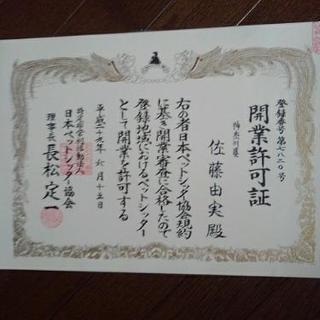 登録番号第七八二〇号
開業許可証
神奈川県
佐藤由実 殿
右の者日本ペットシッター協会規約
に基き開業審査に合格したので
登録地域におけるペットシッター
として開業を許可する
平成二十九年六月十五日
特定非営利活動法人
日本ペットシッター協会
理事長 長松定一